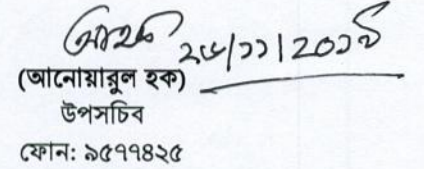 ২৮/১১/২০১৮
(আনোয়ারুল হক)
উপসচিব
ফোন: ৯৫৭৭৪২৫